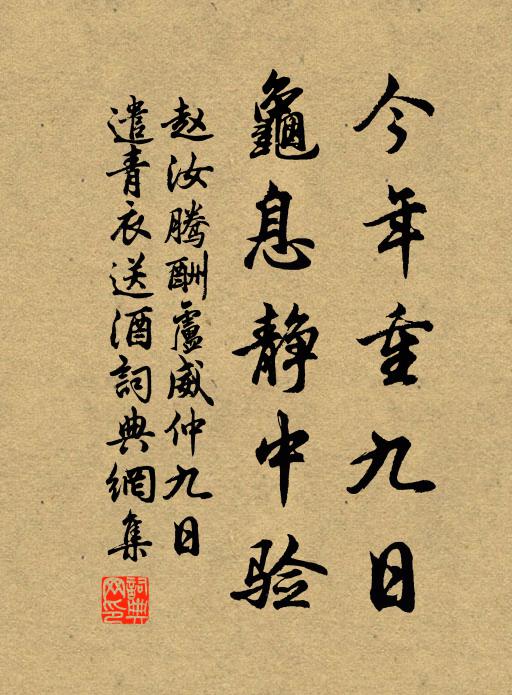 今年重九日
龜息静中验
赵汝腾酬盧威仲九日
遣青衣送酒詞典網集
詞典
网印